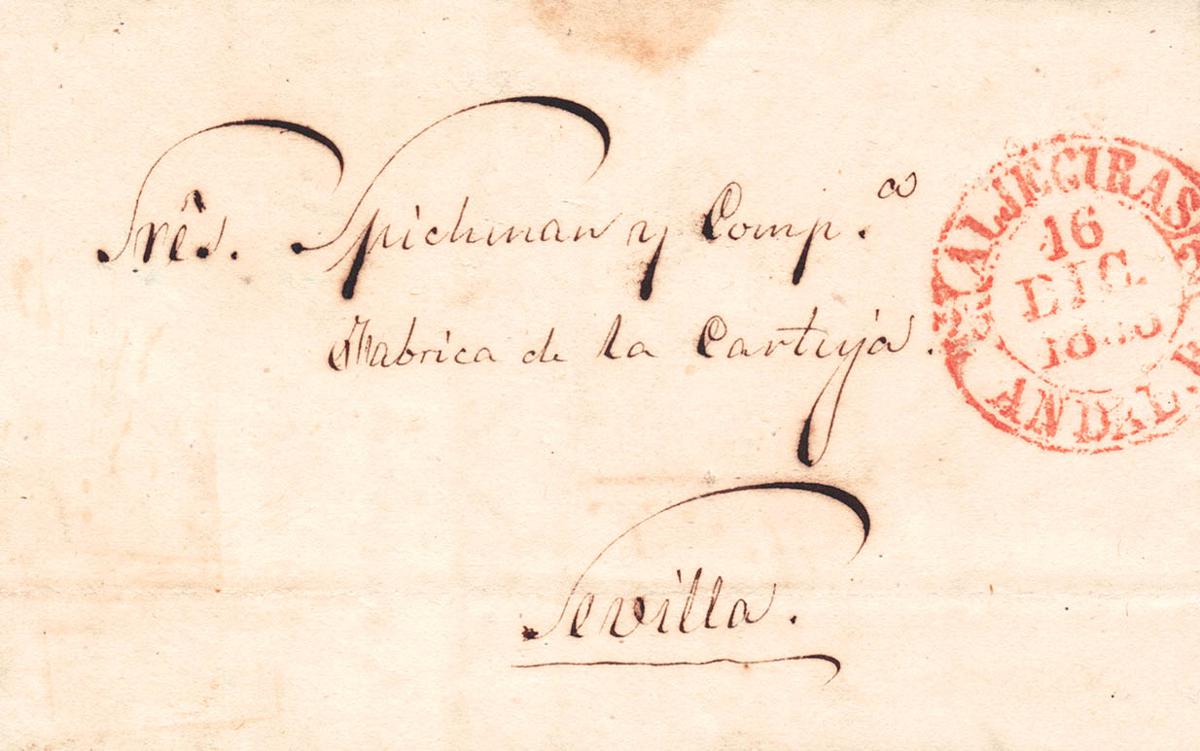 Srês. Spichman y Comp.ª
Fabrica de la Cartuja.
Sevilla.
ALJECIRAS
16
DIC.
ANDAL. B